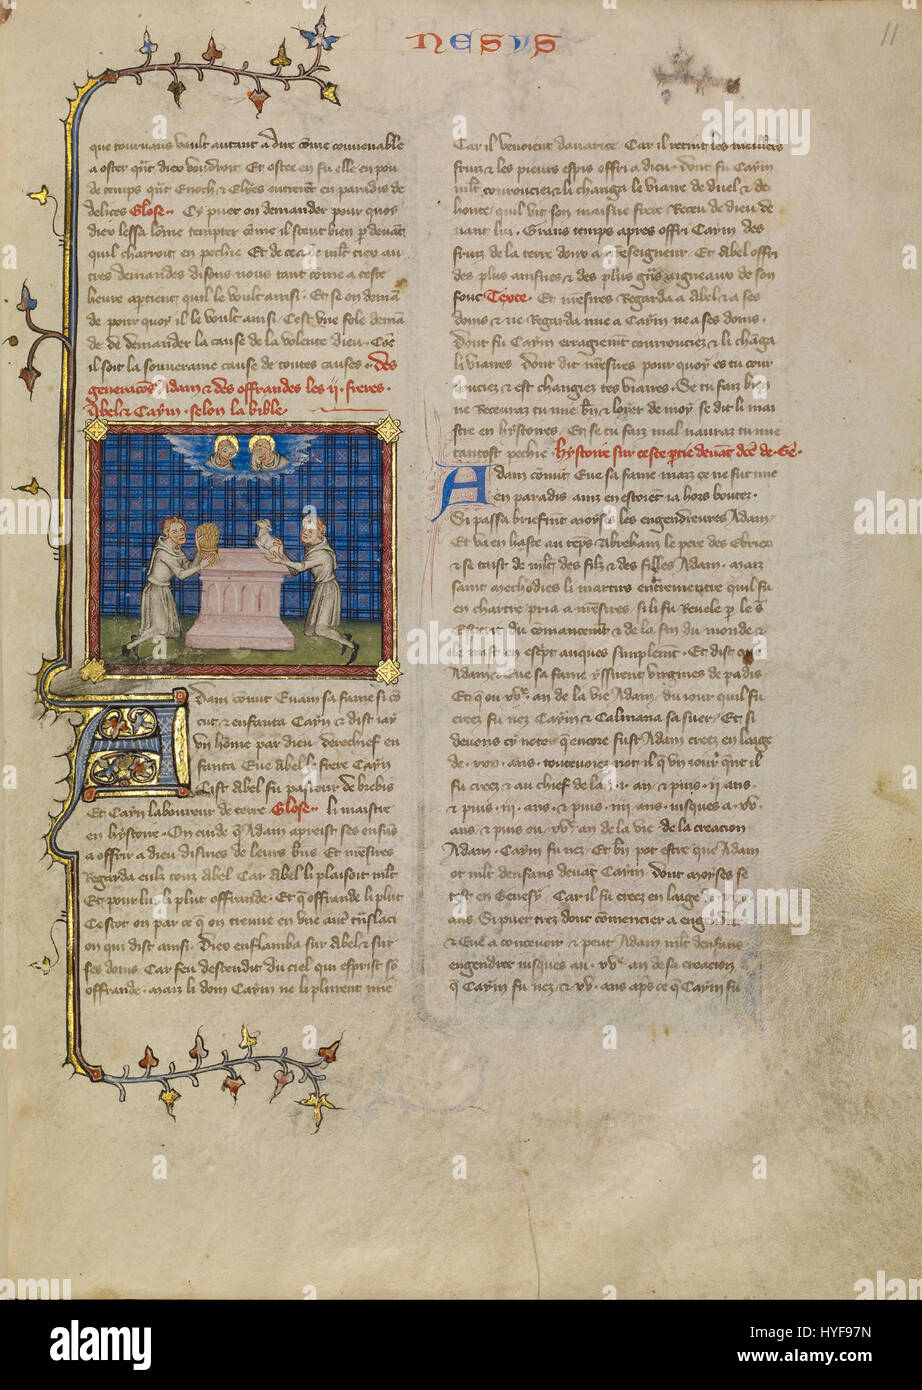 NESYS
11
que tournans vault autant a dire come convenable
a oster qñt dieu vendroit. Et ostee en fu elle en pou
de temps qñt Enoch, & Elyes entrerent en paradis de
delices Glose. Cy puet on demander pour quoy
dieu lessa lome tempter come il sceust bien
quil charroit en pechie Et de ceste
tres demandes disons nous tant come a ceste
heure aptient quil le voult ainsi. Et se on deman
de pour quoy il le voult ainsi. Cest vne fole deman
de de demander la cause de la volente dieu. Cōe
il soit la souveraine cause de toutes causes. des
generacōs Adam & des offrandes les ii. freres.
Abel & Caÿm. selon la bible
Adam conut Euam sa fame si cō
cut, & enfanta Caÿn & dist iay
vn hōme par dieu. derechief en
fanta Eue abel li frere Caÿn
Cist abel fu pasteur de brebis
Et Caÿn laboureur de terre Glose. li maistre
en hystoire. On cuide q̄ Adam apreist ses enfans
a offrir a dieu dismes de leurs biens Et
Regarda eulz touz abel Car abel li plaisoit mlt
Et pour lui li plut offrande. Et q̄ offrande li plut
Cestot on par ce q̄ on treuue en vne aut' tñslaci
on qui dist ainsi. Dieu enflamba sur abel & sur
ses dons. Car feu descendit du ciel qui esprist sō
offrande. maiz li don Caÿm ne li plurent mie
Car il venoient dauarice Car il retint les meilleurs
fruiz & les pieurs espis offri a dieu. dont fu Caÿm
mlt courouciez & li changa le viaire de duel & de
honte, quil vit son maisne frere Receu de dieu de
uant lui. Grans temps apres offri Caÿm des
fruiz de la terre dons a nr̄eseigneur. Et abel offri
des plus ainsnes & des plus gñs aigneaux de son
fouc Texte. Et nr̄esires Regarda a abel & a ses
dons & ne Regarda mie a Caÿm ne a ses dons.
Dont fu Caÿm courouciez & li changa
li viaires dont dist nr̄esires pour quoy es tu cour
rouciez & est changiez tes viaires. Se tu faiz bien
ne Receuraz tu mie bñ & loyer de moy se dit li mai
stre en hystoires. Et se tu faiz mal nauraz tu mie
tantost pechie. hystoire sur ceste ptie deuāt dce de. Ge.
Adam conut Eue sa fame maiz ce ne fut mie
en paradis ainz en estoiet ia hors boutez.
Si passa briefmt moyses les engendreures Adam.
Et va en haste au teps Abraham le pere des Ebrieux
& se teust de mlt des filz & des filles Adam. maiz
saint methodies li martirs quil fu
en chartre pria a nr̄esires si li fu Reuele
du comancemt & de la fin du monde &
Et dist que
Adam & Eue sa fame yssirent virgines de padis
Et q̄ ou xve. an de la vie Adam. du iour quil fu
creez fu nez Caÿm & Calmana sa suer. Et si
deuons cy noter q̄ encore fust Adam creez en laage
de .xxx. ans. toutevoiez not il q̄ vn iour qñt il
fu creez & au chief de lan .i. an. & puis .ii. ans.
& puis .iii. ans. & puis .iiii. ans iusques a .xv.
ans. & puis ou .xve. an de la vie de la creacion
Adam. Caÿm fu nez. Et bñ pot estre que Adam
ot mlt denfans deuāt Caÿm. dont moyses se
test en Genesy. Car il fu creez en laage de .xxx.
ans. Si puet trez donc cōmencier a engendrer
& Eue a conceuoir & peut Adam mlt denfans
engendrer iusques au .xve. an de sa creacion
q̄ Caÿm fu nez. & xv. ans aps ce q̄ Caÿm fu
alamy
Image ID: HYF97N
www.alamy.com